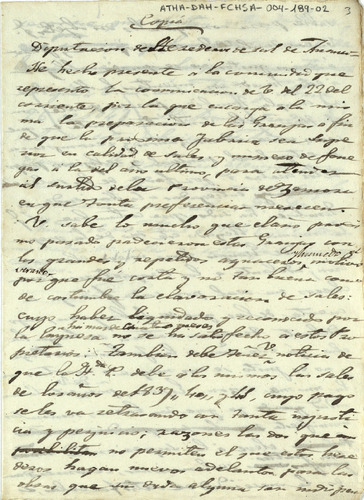 ATHA-DAH-FCHSA-004-189-02
3
Copia
Diputacion de Herederos de sal de
He hecho presente a la comunidad que
represento la comunicacion de V. del 22 del
corriente, por la que encarga a la mis
ma la preparacion de las Granjas a fin
de que la proxima fabrica sea supe
rior en calidad de sales y numero de fane
gas a la del año ultimo, para atender
al surtido de la Provincia de Zamora
en que tanta preferencia merecen.
V. sabe lo mucho que el año proxi
mo pasado padecieron estas Granjas con
los grandes, y repetidos aguaceros,
por que fue corta y no tan buena como
de costumbre la elaboracion de sales:
cuyo haber liquidado y reconocido por
la Empresa no se ha satisfecho a estos pro
pietarios: Tambien debe tener V. noticia de
que la H. P. debe a los mismos las sales
de los años de 1839, 40, y 41, cuyo pago
se les va retrasando con tanta injusti
cia y perjuicio, razones las dos que
no permiten el que estos here
deros hagan nuevos adelantos para las
obras que sin duda alguna son indispen